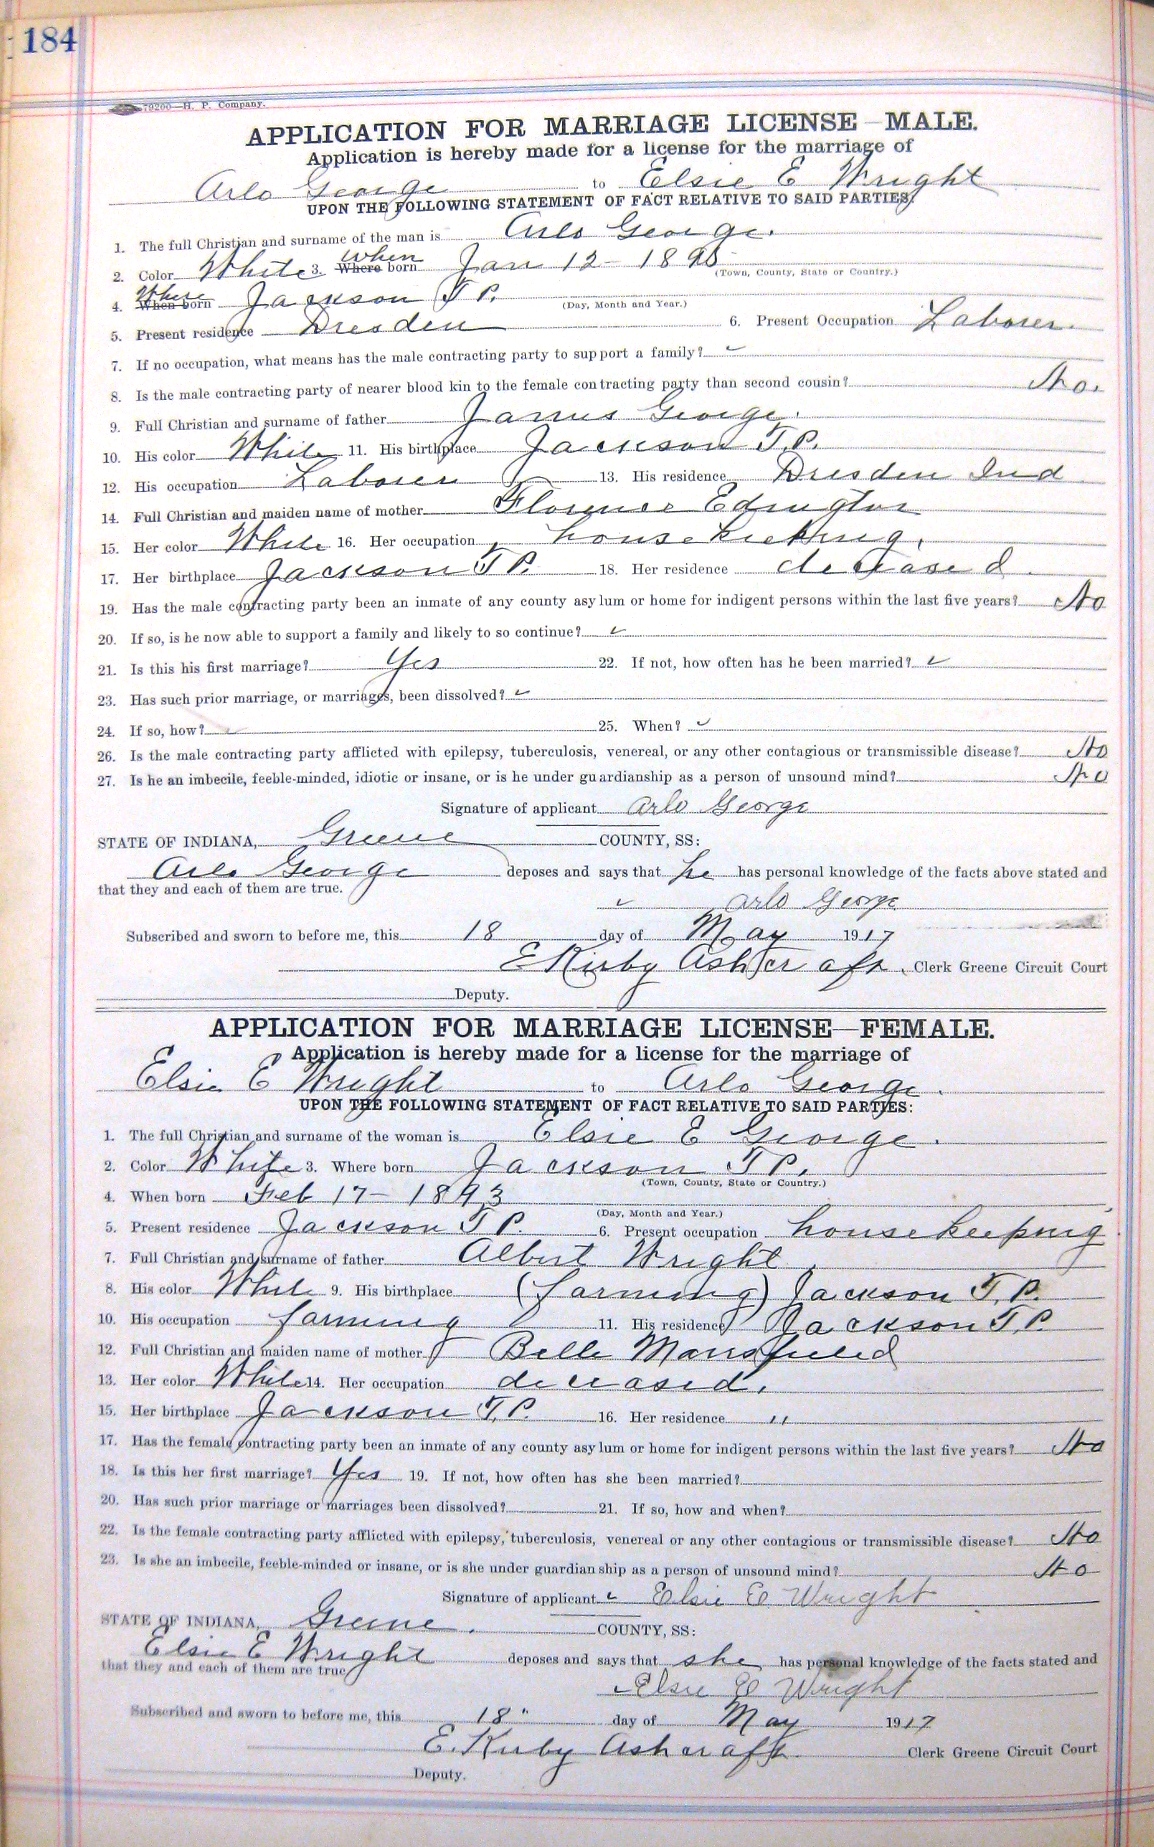 184
79200—H. P. Company.
APPLICATION FOR MARRIAGE LICENSE—MALE.
Application is hereby made for a license for the marriage of
Arlo George to Elsie E Wright
UPON THE FOLLOWING STATEMENT OF FACT RELATIVE TO SAID PARTIES:
1. The full Christian and surname of the man is Arlo George.
2. Color White 3. Where When born Jan 12 - 1895
(Town, County, State or Country.)
4. When Where born Jackson T P.
(Day, Month and Year.)
5. Present residence Dresden 6. Present Occupation Laborer.
7. If no occupation, what means has the male contracting party to support a family? ✓
8. Is the male contracting party of nearer blood kin to the female contracting party than second cousin? No.
9. Full Christian and surname of father James George.
10. His color White 11. His birthplace Jackson T.P.
12. His occupation Laborer 13. His residence Dresden Ind
14. Full Christian and maiden name of mother Florence Edington
15. Her color White 16. Her occupation housekeeping.
17. Her birthplace Jackson T P. 18. Her residence deceased.
19. Has the male contracting party been an inmate of any county asylum or home for indigent persons within the last five years? No
20. If so, is he now able to support a family and likely to so continue? ✓
21. Is this his first marriage? Yes 22. If not, how often has he been married? ✓
23. Has such prior marriage, or marriages, been dissolved? ✓
24. If so, how? ✓ 25. When? ✓
26. Is the male contracting party afflicted with epilepsy, tuberculosis, venereal, or any other contagious or transmissible disease? No
27. Is he an imbecile, feeble-minded, idiotic or insane, or is he under guardianship as a person of unsound mind? No
Signature of applicant Arlo George
STATE OF INDIANA, Greene COUNTY, SS:
Arlo George deposes and says that he has personal knowledge of the facts above stated and
that they and each of them are true.
✓ Arlo George
Subscribed and sworn to before me, this 18 day of May 1917
E Kirby Ashcraft, Clerk Greene Circuit Court
Deputy.
APPLICATION FOR MARRIAGE LICENSE—FEMALE.
Application is hereby made for a license for the marriage of
Elsie E Wright to Arlo George.
UPON THE FOLLOWING STATEMENT OF FACT RELATIVE TO SAID PARTIES:
1. The full Christian and surname of the woman is Elsie E George.
2. Color White 3. Where born Jackson T P.
(Town, County, State or Country.)
4. When born Feb 17 - 1893
(Day, Month and Year.)
5. Present residence Jackson T P. 6. Present occupation housekeeping
7. Full Christian and surname of father Albert Wright
8. His color White 9. His birthplace (farming) Jackson T.P.
10. His occupation farming 11. His residence Jackson T.P.
12. Full Christian and maiden name of mother Belle Mansfield
13. Her color White 14. Her occupation deceased.
15. Her birthplace Jackson T.P. 16. Her residence "
17. Has the female contracting party been an inmate of any county asylum or home for indigent persons within the last five years? No
18. Is this her first marriage? Yes 19. If not, how often has she been married?
20. Has such prior marriage or marriages been dissolved? 21. If so, how and when?
22. Is the female contracting party afflicted with epilepsy, tuberculosis, venereal or any other contagious or transmissible disease? No
23. Is she an imbecile, feeble-minded or insane, or is she under guardianship as a person of unsound mind? No
Signature of applicant ✓ Elsie E Wright
STATE OF INDIANA, Greene. COUNTY, SS:
Elsie E Wright deposes and says that she has personal knowledge of the facts stated and
that they and each of them are true
✓ Elsie E Wright
Subscribed and sworn to before me, this 18" day of May 1917
E. Kirby Ashcraft. Clerk Greene Circuit Court
Deputy.